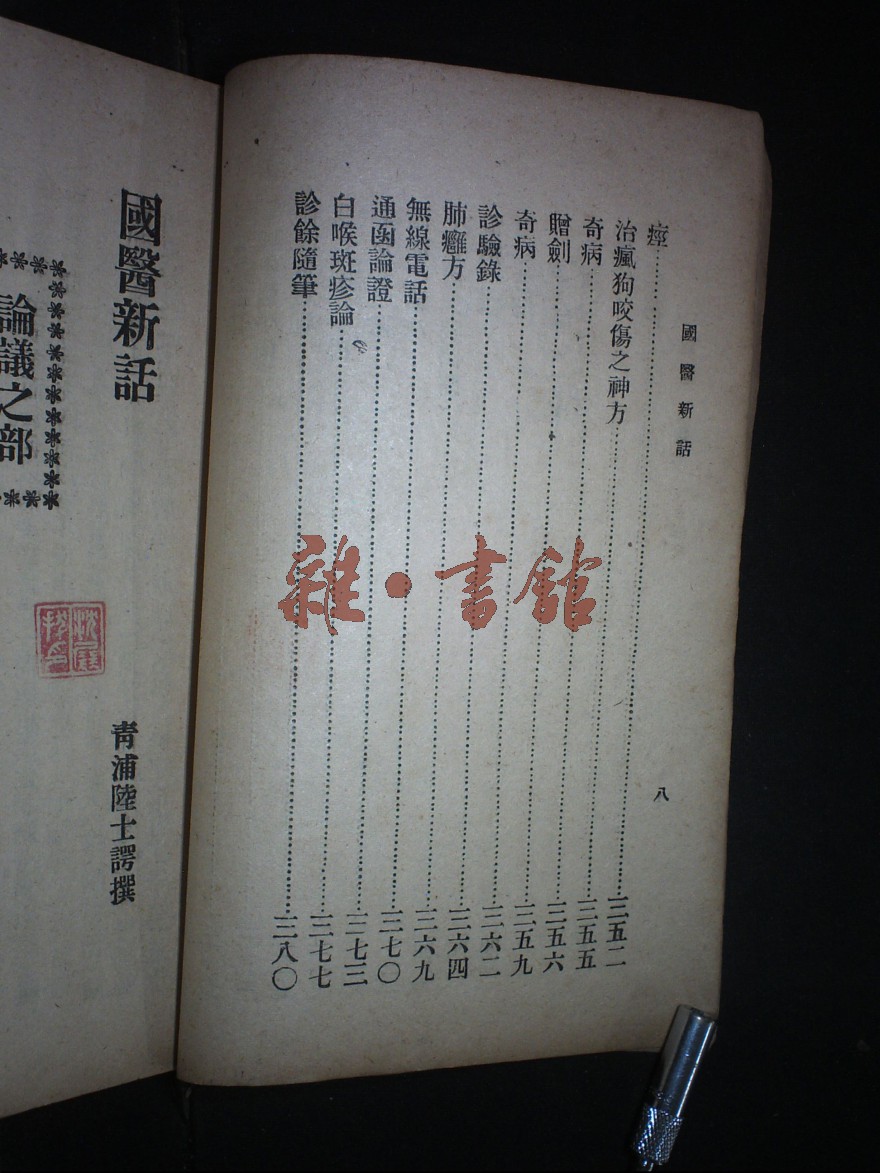 國醫新話
八
痙……三五二
治瘋狗咬傷之神方……三五五
奇病……三五六
贈劍……三五九
奇病……三六二
診驗錄……三六四
肺癰方……三六九
無線電話……三七〇
通函論證……三七三
白喉斑疹論……三七七
診餘隨筆……三八〇
國醫新話
青浦陸士諤撰
論議之部
雜·書館